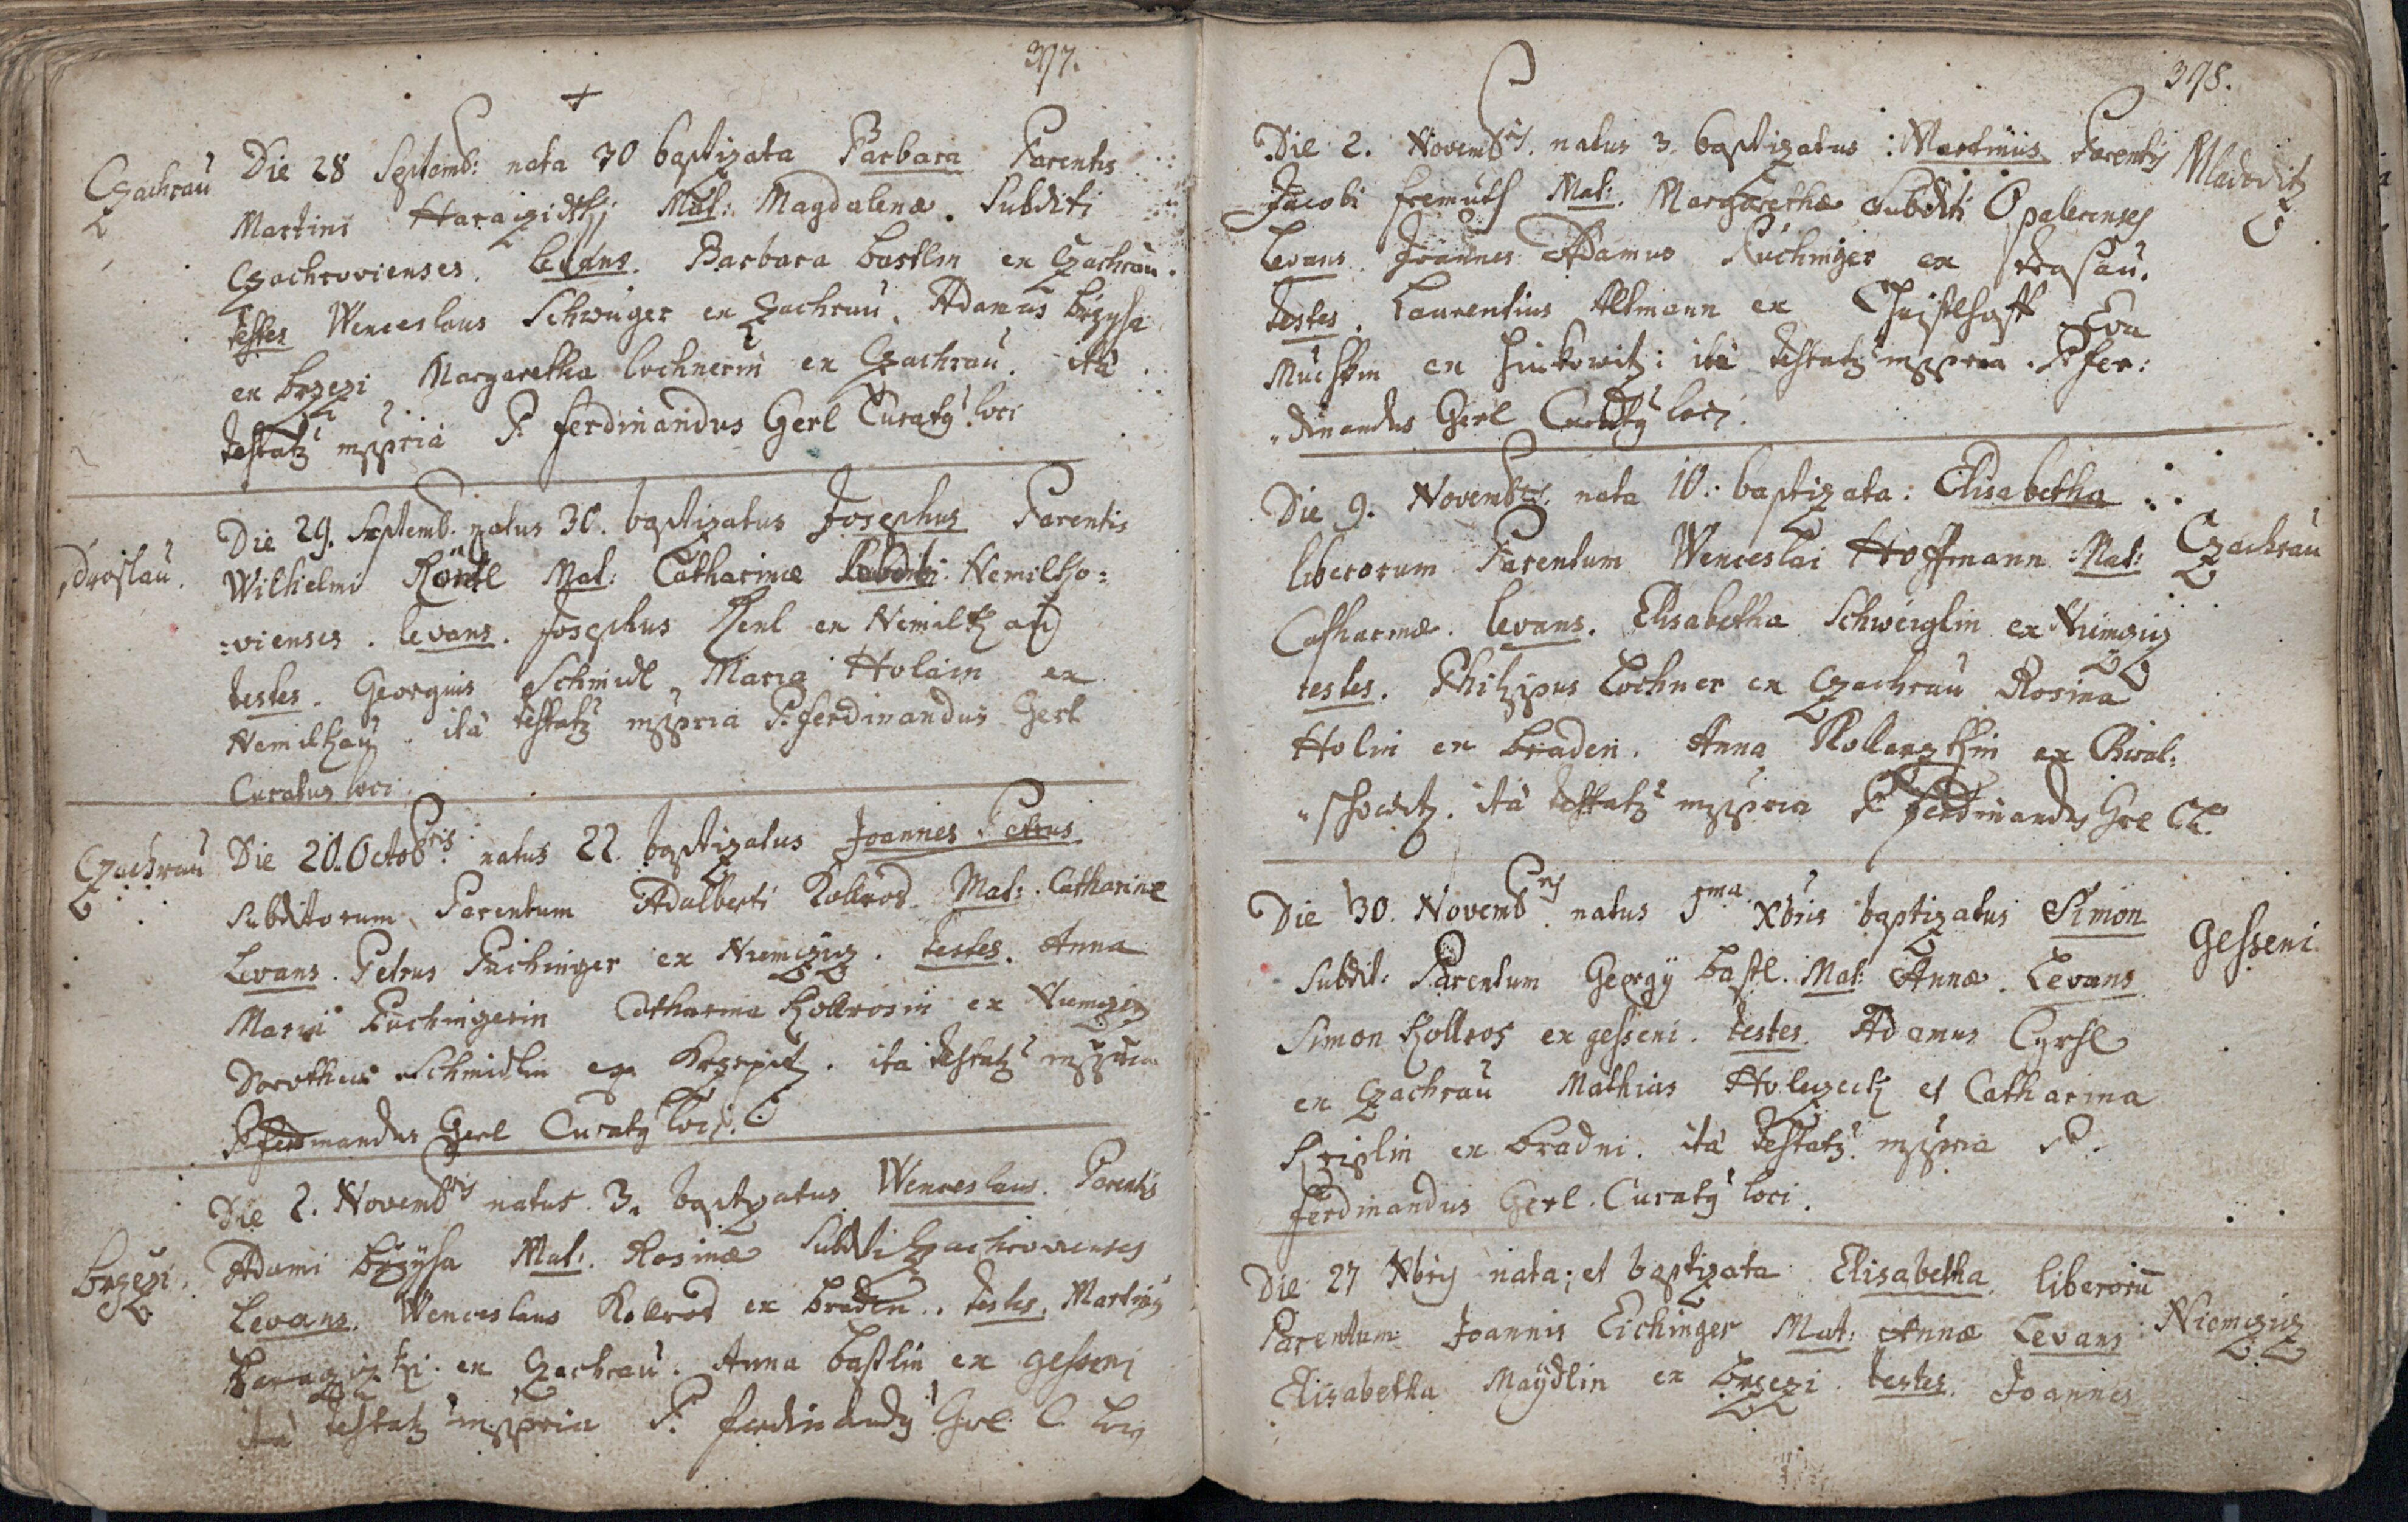 377.
Czachrau
Die 28 Septemb: nata 30 baptizata Barbara Parentis
Martini Harazidskj Mat: Magdalenæ. Subditi
Czachrovienses. levans. Barbara bastlin ex Czachrau.
testes Wenceslaus Schwuger ex Czachrau. Adamus brzysa
ex brzezi Margaretha lochnerin ex Czachrau. ità
testatz mppria P. ferdinandus Gerl Curatq loci
Droslau.
Die 29. Septemb. natus 30. baptizatus Josephus Parentis
Wilhelmi Mat: Catharinæ Subditi Nemilko=
=vienses. levans. Josephus ex Nemilkau
testes. Georgius Schmidl, Maria Holain ex
Nemilkau. ità testatz mppria P. ferdinandus Gerl
Curatus loci.
Czachrau
Die 20. Octobris. natus 22. baptizatus Joannes Petrus
Subditorum Parentum Adalberti Kollros Mat: Catharinæ
Levans. Petrus Puchinger ex Niemczicz. testes. Anna
Maria Puchingerin Catharina Kollrosin ex Niemczicz
Dorothea Schmidlin ex. ita testatz mppria
P. ferdinandus Gerl Curatq loci.
Brzezi.
Die 2. Novembris natus 3. baptizatus Wenceslaus. Parentis
Adami brzysa Mat: Rosinæ Subditi Czachrovienses
Levans. Wenceslaus Kollros ex braden. testes. Martinus
ex Czachrau. Anna bastlin ex gesseni
ità testatz mppria P. ferdinandq Gerl C. loci
378.
Die 2. Novembris. natus 3. baptizatus: Martinus Parentis
Mladoditz
Jacobi fremuth Mat: Margarethæ Subditi Opalecenses
Levans. Joannes Adamus Puchinger ex.
testes. Laurentius Altmann ex Christlhoff Eva
ex: ità testatz mppria. P. fer:
„dinandus Gerl Curatq loci.
Die 9. Novembris. nata 10. baptizata: Elisabetha
liberorum Parentum Wenceslai Hoffmann Mat:
Czachrau
Catharinæ. levans. Elisabetha Schweiglin ex Niemczicz
testes. Philippus Lochner ex Czachrau Rosina
Holin ex braden. Anna ex Chwal:
„schowitz. ità testatz mppria P. ferdinandus Gerl CL.
Die 30. Novembris natus 1ma Xbris baptizatus Simon
Gesseni.
Subdit: Parentum Georgÿ bastl. Mat: Annæ. Levans
Simon Kollros ex gesseni. testes. Adamus Cyrhl
ex Czachrau Mathias Holeczeck et Catharina
ex bradni. ità testatz mppria P.
ferdinandus Gerl. Curatq loci.
Die 27 Xbris nata; et baptizata Elisabetha. liberorū
Parentum Joannis Eichinger Mat: Annæ Levans
Niemczicz
Elisabetha Maÿdlin ex brzezi testes. Joannes